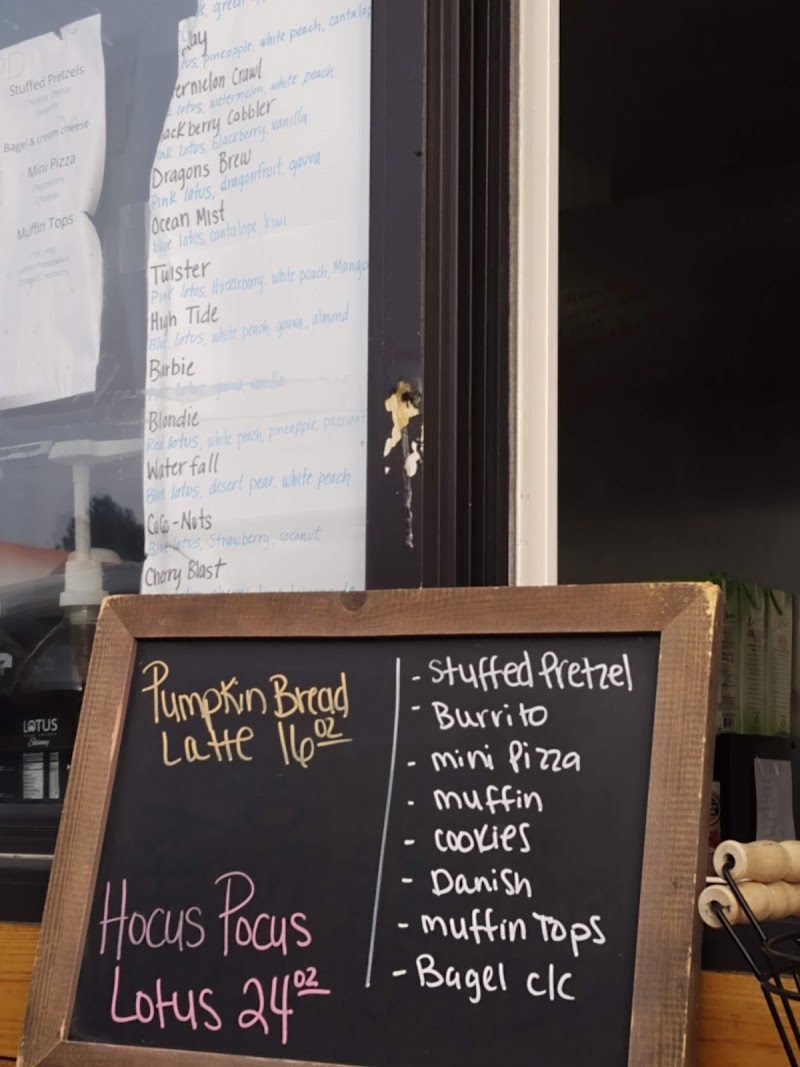 Stuffed Pretzels
Cheddar Cheese
Jalapeño
Bagel & cream cheese
Mini Pizza
Pepperoni
Cheese
Muffin Tops
Choc chip
Lemon Poppyseed
Orange Cranberry
green
pineapple, white peach, cantalop
lotus, watermelon, white peach
Cobbler
lotus, blackberry, vanilla
Dragons Brew
Pink lotus, dragonfruit, gauva
Ocean Mist
Blue lotus, cantalope, kiwi
Twister
Pink lotus, Huckleberry, white peach, Mango
High Tide
Blue lotus, white peach, gauva, almond
Barbie
lotus, gauva, vanilla
Blondie
Red lotus, white peach, pineapple, passion
Waterfall
Blue lotus, desert pear, white peach
CoCo-Nuts
Blue lotus, Strawberry, coconut
Cherry Blast
LOTUS
Skinny
Pumpkin Bread
Latte 16oz
Hocus Pocus
Lotus 24oz
- Stuffed Pretzel
- Burrito
- mini Pizza
- muffin
- cookies
- Danish
- muffin Tops
- Bagel c/c